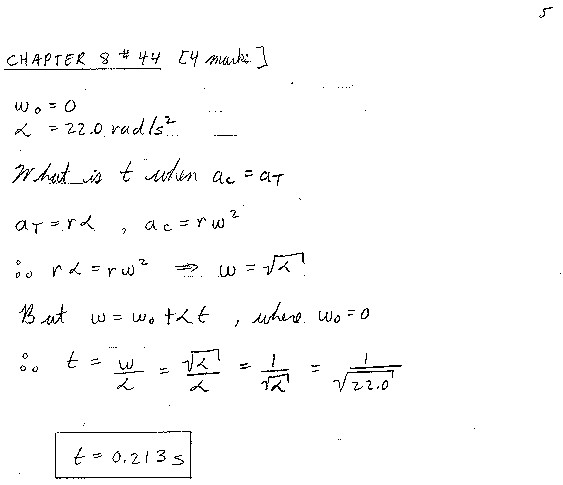 5
CHAPTER 8 # 44 [4 marks]
ω₀ = 0
α = 22.0 rad/s²
What is t when a_c = a_T
a_T = rα , a_c = rω²
∴ rα = rω² ⇒ ω = √α
But ω = ω₀ + αt , where ω₀ = 0
∴ t = ω/α = √α/α = 1/√α = 1/√22.0
t = 0.213 s